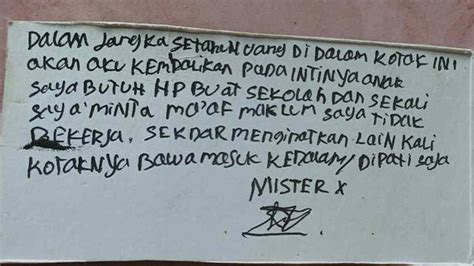 Dalam Jangka SETAHUN uang Di Dalam KOTAK INI
akan aku KEMBALIKAN PADA INTINYA anak
saya BUTUH HP BUAT SEKOLAH Dan SEKALI
saya MINTA MA'AF MAKLUM saya TIDAK
BEKERJA. SEKDAR MENGINATKAN LAIN KALI
KOTAKNYA BAWA MASUK KEDALAM/
MISTER X